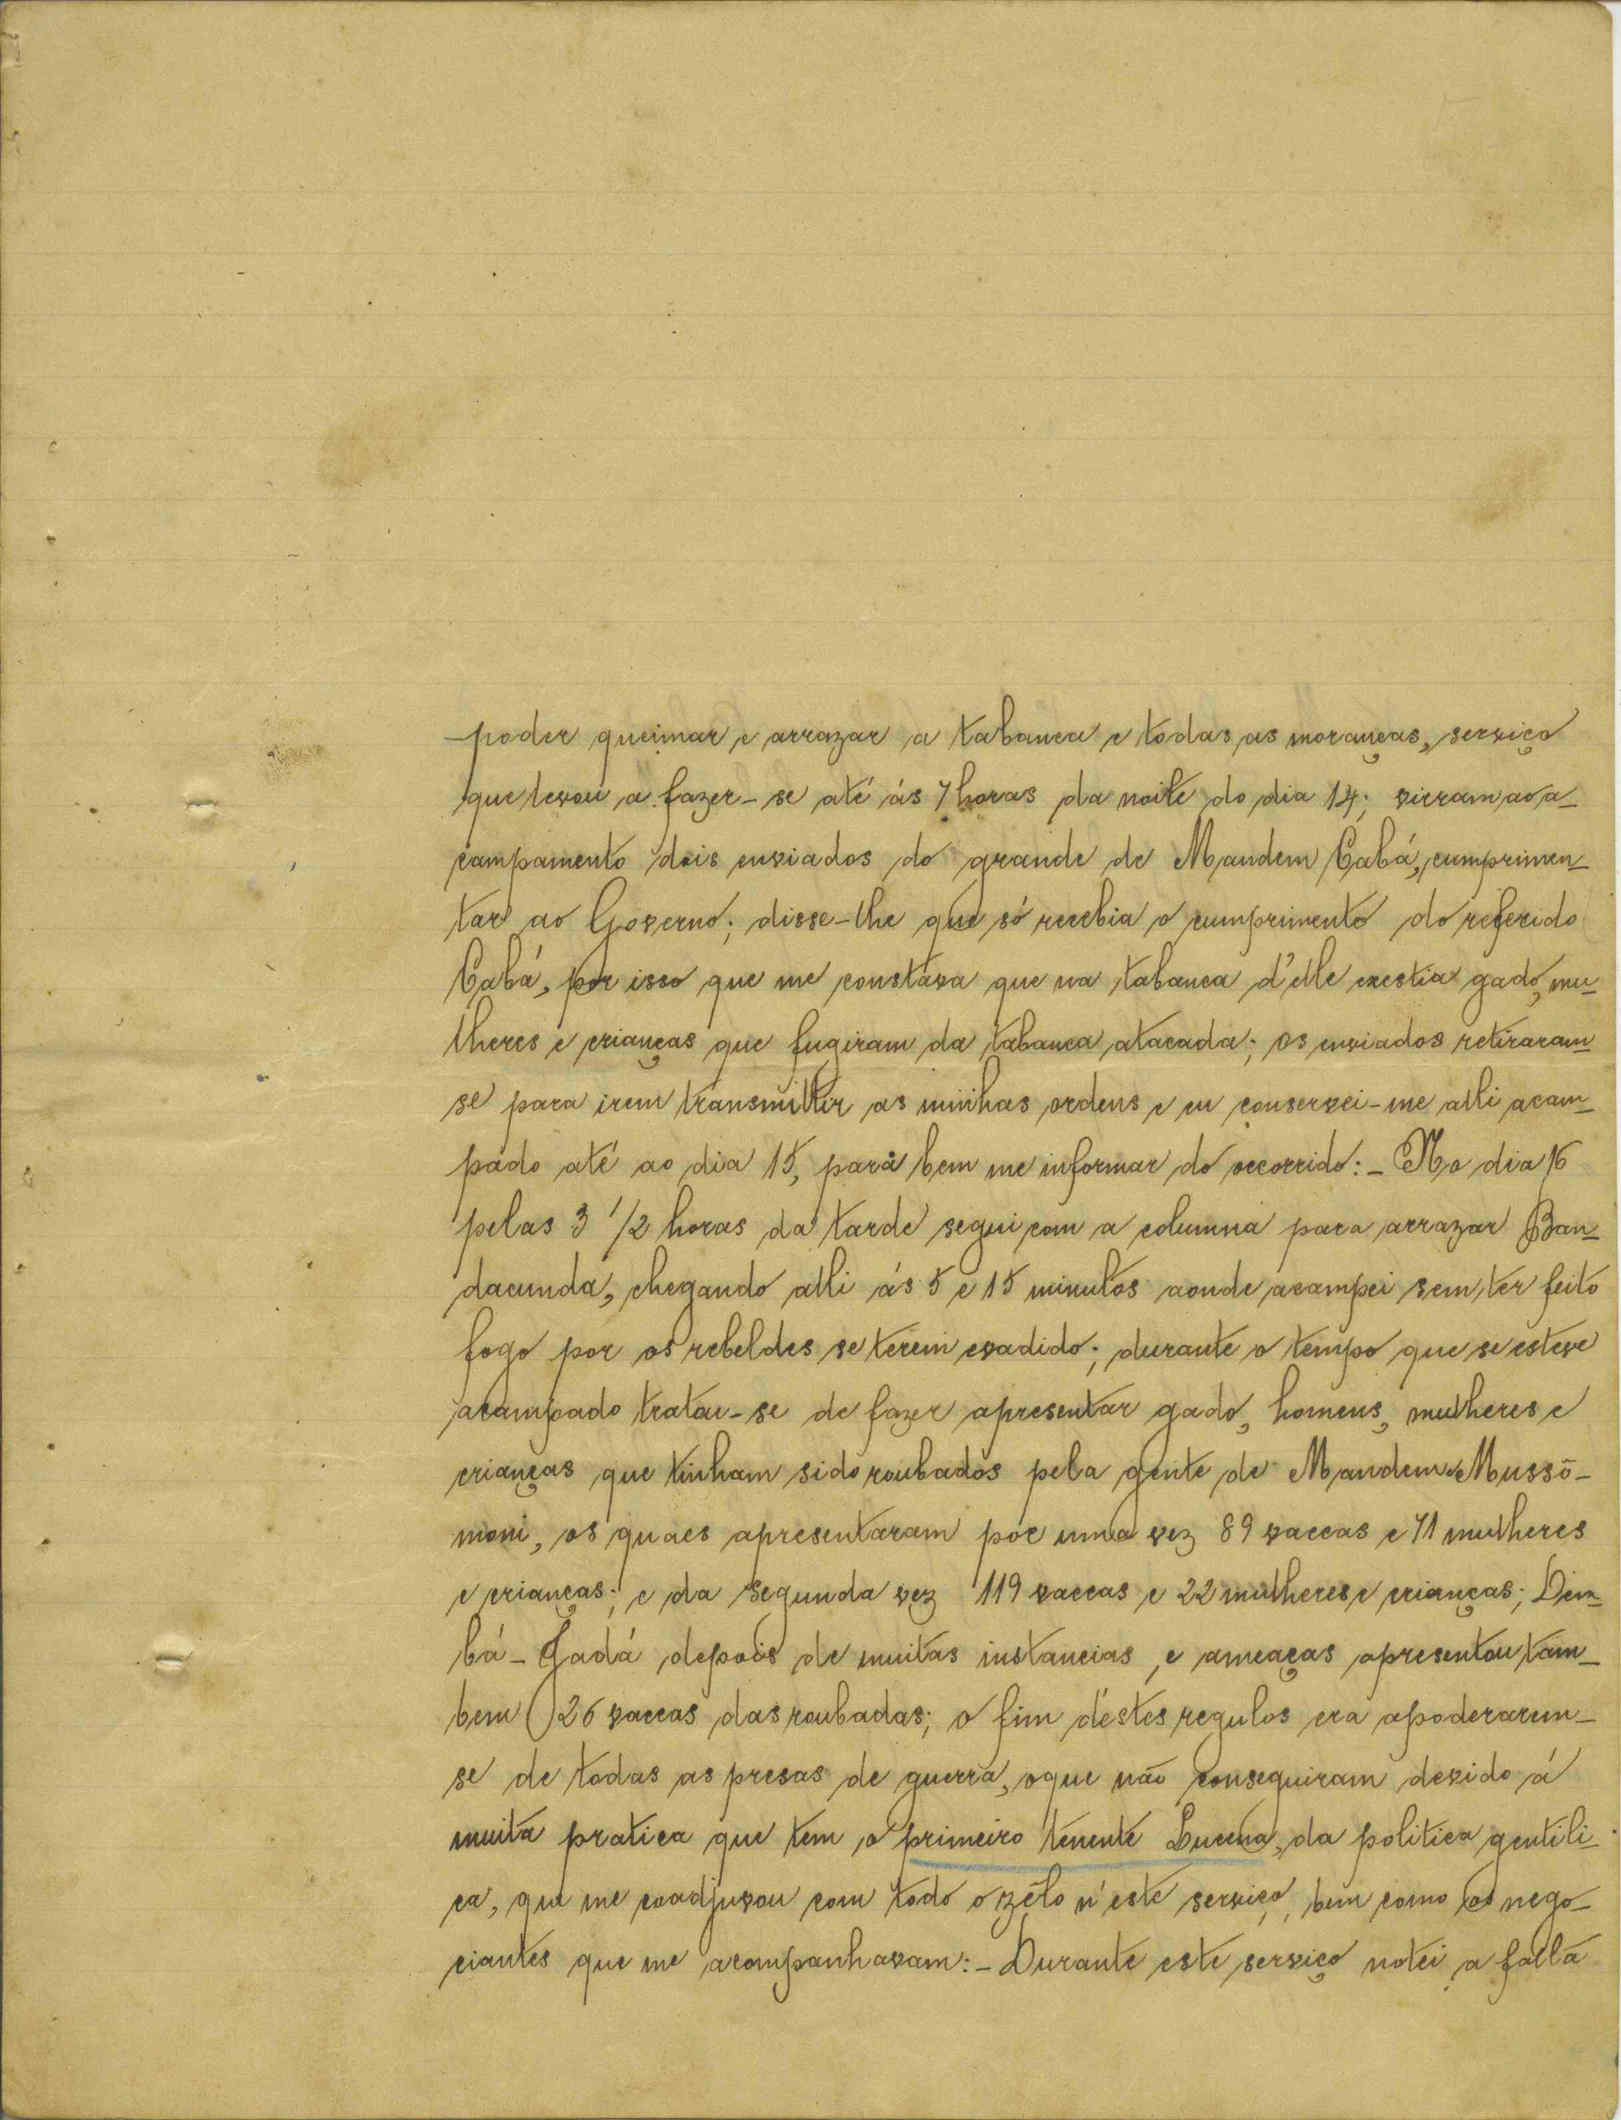 poder queimar e arrazar a tabanca e todas as moranças, serviço
que levou a fazer-se até ás 7 horas da noite do dia 14; vieram ao a-
campamento dois enviados do grande de Mandem Cabá, cumprimen-
tar ao Governo; disse-lhe que só recebia o cumprimento do referido
Cabá, por isso que me constava que na tabanca d'elle existia gado, mu-
lheres e crianças que fugiram da tabanca atacada; os enviados retiraram-
se para irem transmittir as minhas ordens e eu conservei-me alli acam-
pado até ao dia 15, para bem me informar do occorrido:- No dia 16
pelas 3 1/2 horas da tarde segui com a columna para arrazar Ban-
dacunda, chegando alli ás 5 e 15 minutos aonde acampei sem ter feito
fogo por os rebeldes se terem evadido; durante o tempo que se esteve
acampado tratou-se de fazer apresentar gado, homens, mulheres e
crianças que tinham sido roubados pela gente de Mandem e Mussó-
moni, os quaes apresentaram por uma vez 89 vaccas e 71 mulheres
e crianças; e da segunda vez 119 vaccas e 22 mulheres e crianças; Dem-
bá-Jadá depois de muitas instancias, e ameaças apresentou tam-
bem 26 vaccas das roubadas; o fim d'estes regulos era apoderarem-
se de todas as presas de guerra, o que não conseguiram devido á
muita pratica que tem o primeiro tenente Lucena, da politica gentili-
ca, que me coadjuvou com todo o zêlo n'este serviço, bem como os nego-
ciantes que me acompanhavam:- Durante este serviço notei a falta